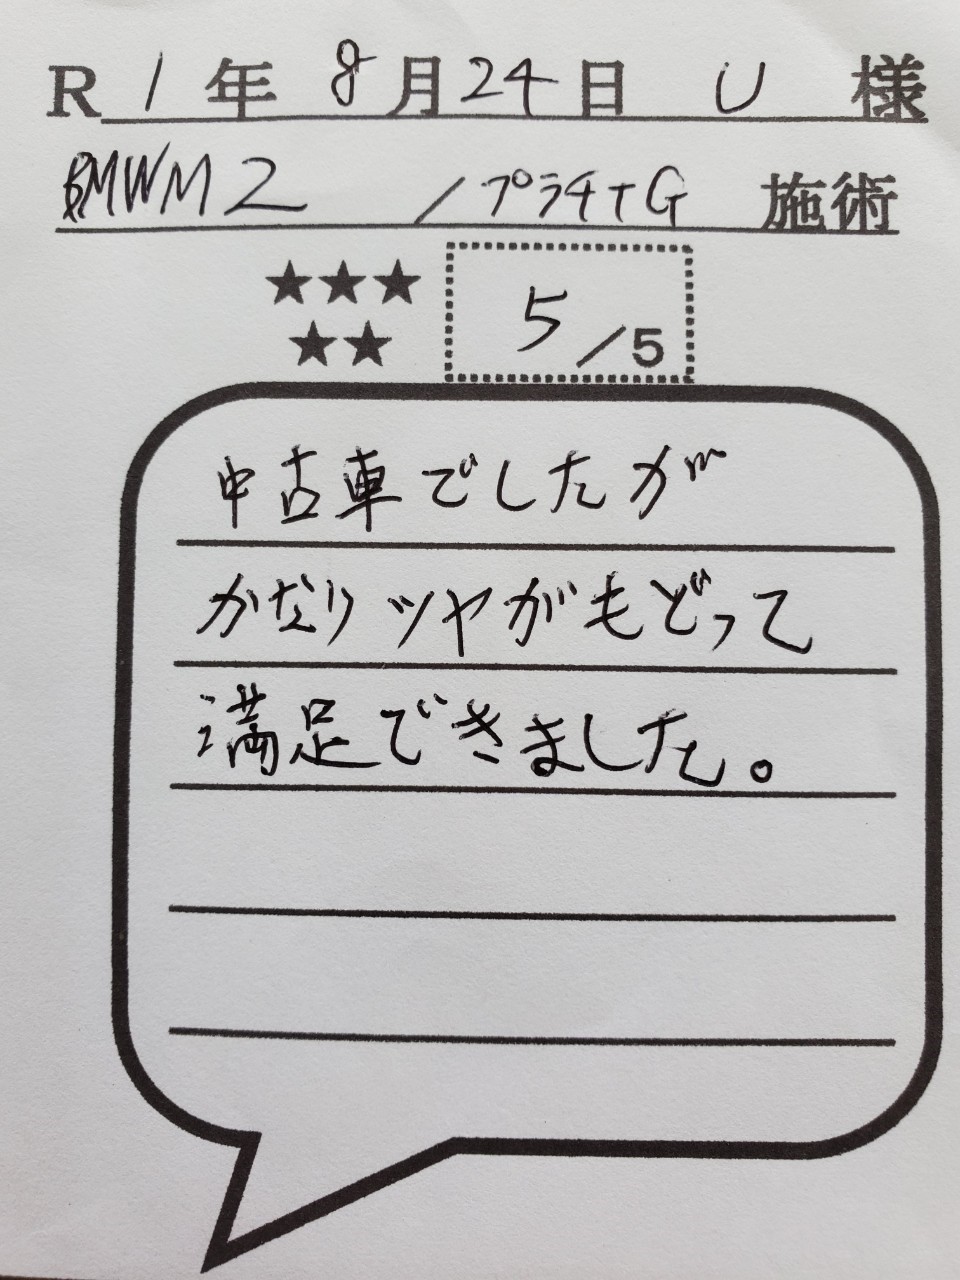 R1年8月24日 U 様
BMWM2 /プラチナG 施術
★★★
★★
5/5
中古車でしたが
かなりツヤがもどって
満足できました。